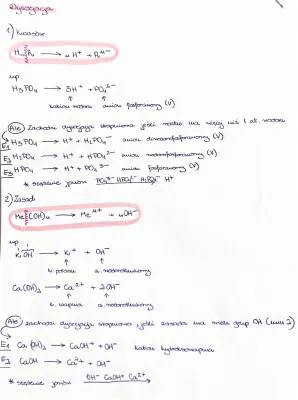 Dysocjacja
1) Kwasów
HₙR → nH⁺ + Rⁿ⁻
np.
H₃PO₄ → 3H⁺ + PO₄³⁻
kation wodoru anion fosforanowy (V)
Ale Zachodzi dysocjacja stopniowa jeśli kwas ma więcej niż 1 at. wodoru
E₁ H₃PO₄ → H⁺ + H₂PO₄⁻ anion diwodorofosforanowy (V)
E₂ H₂PO₄⁻ → H⁺ + HPO₄²⁻ anion wodorofosforanowy (V)
E₃ HPO₄²⁻ → H⁺ + PO₄³⁻ anion fosforanowy (V)
* stężenie jonów PO₄³⁻ HPO₄²⁻ H₂PO₄⁻ H⁺
2) Zasad
Me(OH)ₙ → Meⁿ⁺ + nOH⁻
np.
KOH → K⁺ + OH⁻
k. potasu a. wodorotlenkowy
Ca(OH)₂ → Ca²⁺ + 2OH⁻
k. wapnia a. wodorotlenkowy
Ale zachodzi dysocjacja stopniowa, jeśli zasada ma wiele grup OH
E1 Ca(OH)₂ → CaOH⁺ + OH⁻ kation hydroksowapnia
E2 CaOH → Ca²⁺ + OH⁻
* stężenie jonów OH⁻ CaOH⁺ Ca²⁺